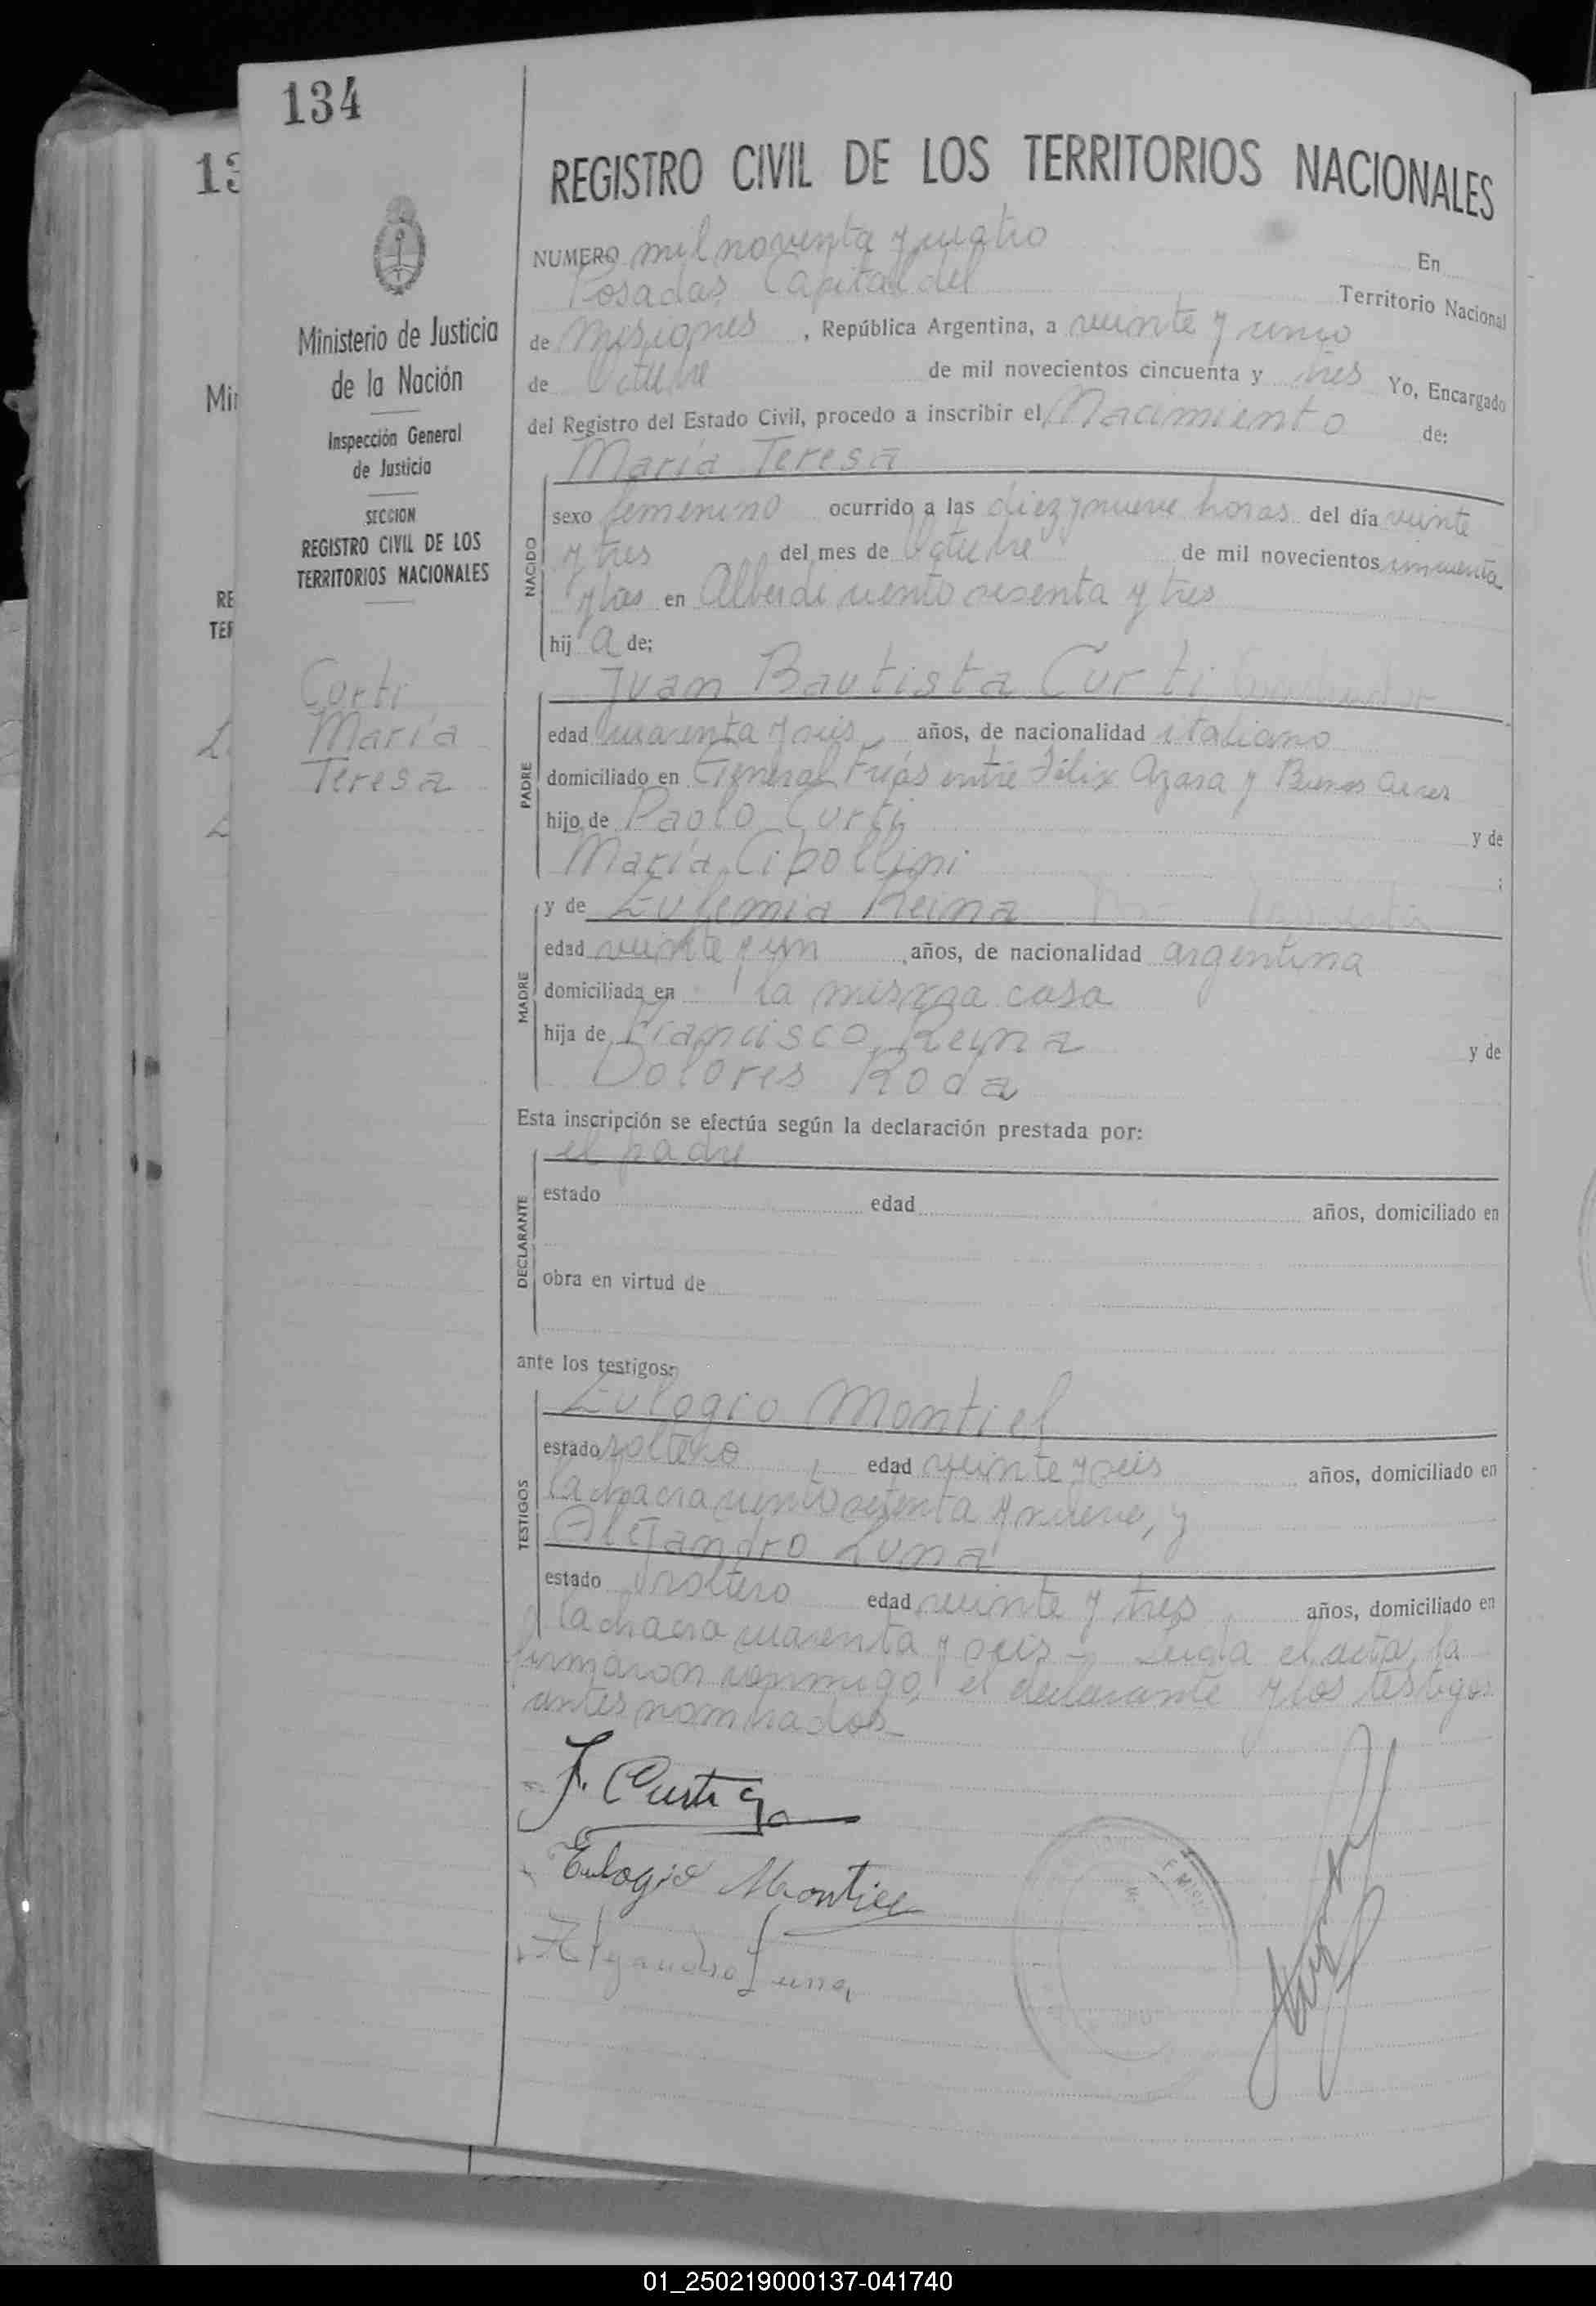 134
13
REGISTRO CIVIL DE LOS TERRITORIOS NACIONALES
NUMERO mil noventa y cuatro En
Posadas Capital del Territorio Nacional
de Misiones, República Argentina, a veinte y cinco
de Octubre de mil novecientos cincuenta y tres Yo, Encargado
del Registro del Estado Civil, procedo a inscribir el Nacimiento de:
María Teresa
NACIDO
sexo femenino ocurrido a las diez y nueve horas del día veinte
y tres del mes de Octubre de mil novecientos cincuenta
y tres en Alberdi ciento sesenta y tres
hija de;
Juan Bautista Curti
PADRE
edad cuarenta y seis años, de nacionalidad italiano
domiciliado en General Frías entre Félix Azara y Buenos Aires
hijo de Paolo Curti y de
María Cipollini ;
y de Eufemia Reina
MADRE
edad veinte y un años, de nacionalidad argentina
domiciliada en la misma casa
hija de Francisco Reyna y de
Dolores Roda
Esta inscripción se efectúa según la declaración prestada por:
el padre
DECLARANTE
estado edad años, domiciliado en
obra en virtud de
ante los testigos:
Eulogio Montiel
TESTIGOS
estado soltero edad veinte y seis años, domiciliado en
la chacra ciento setenta y nueve, y
Alejandro Luna
estado soltero edad veinte y tres años, domiciliado en
la chacra cuarenta y seis - Leída el acta, la
firmaron conmigo, el declarante y los testigos
antes nombrados
J. Curti
Eulogio Montiel
Alejandro Luna
Ministerio de Justicia
de la Nación
Inspección General
de Justicia
SECCION
REGISTRO CIVIL DE LOS
TERRITORIOS NACIONALES
Curti
María
Teresa
Mi
RE
TER
01_250219000137-041740